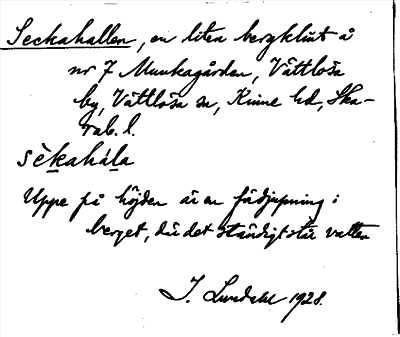 Seckahallen, en liten bergklint å
nr 7 Munkagården, Vättlösa
by, Vättlösa sn, Kinne hd, Ska-
rab. l.
sèkahála
Uppe på höjden är en fördjupning i
berget, där det ständigt står vatten
J. Lundahl 1928.